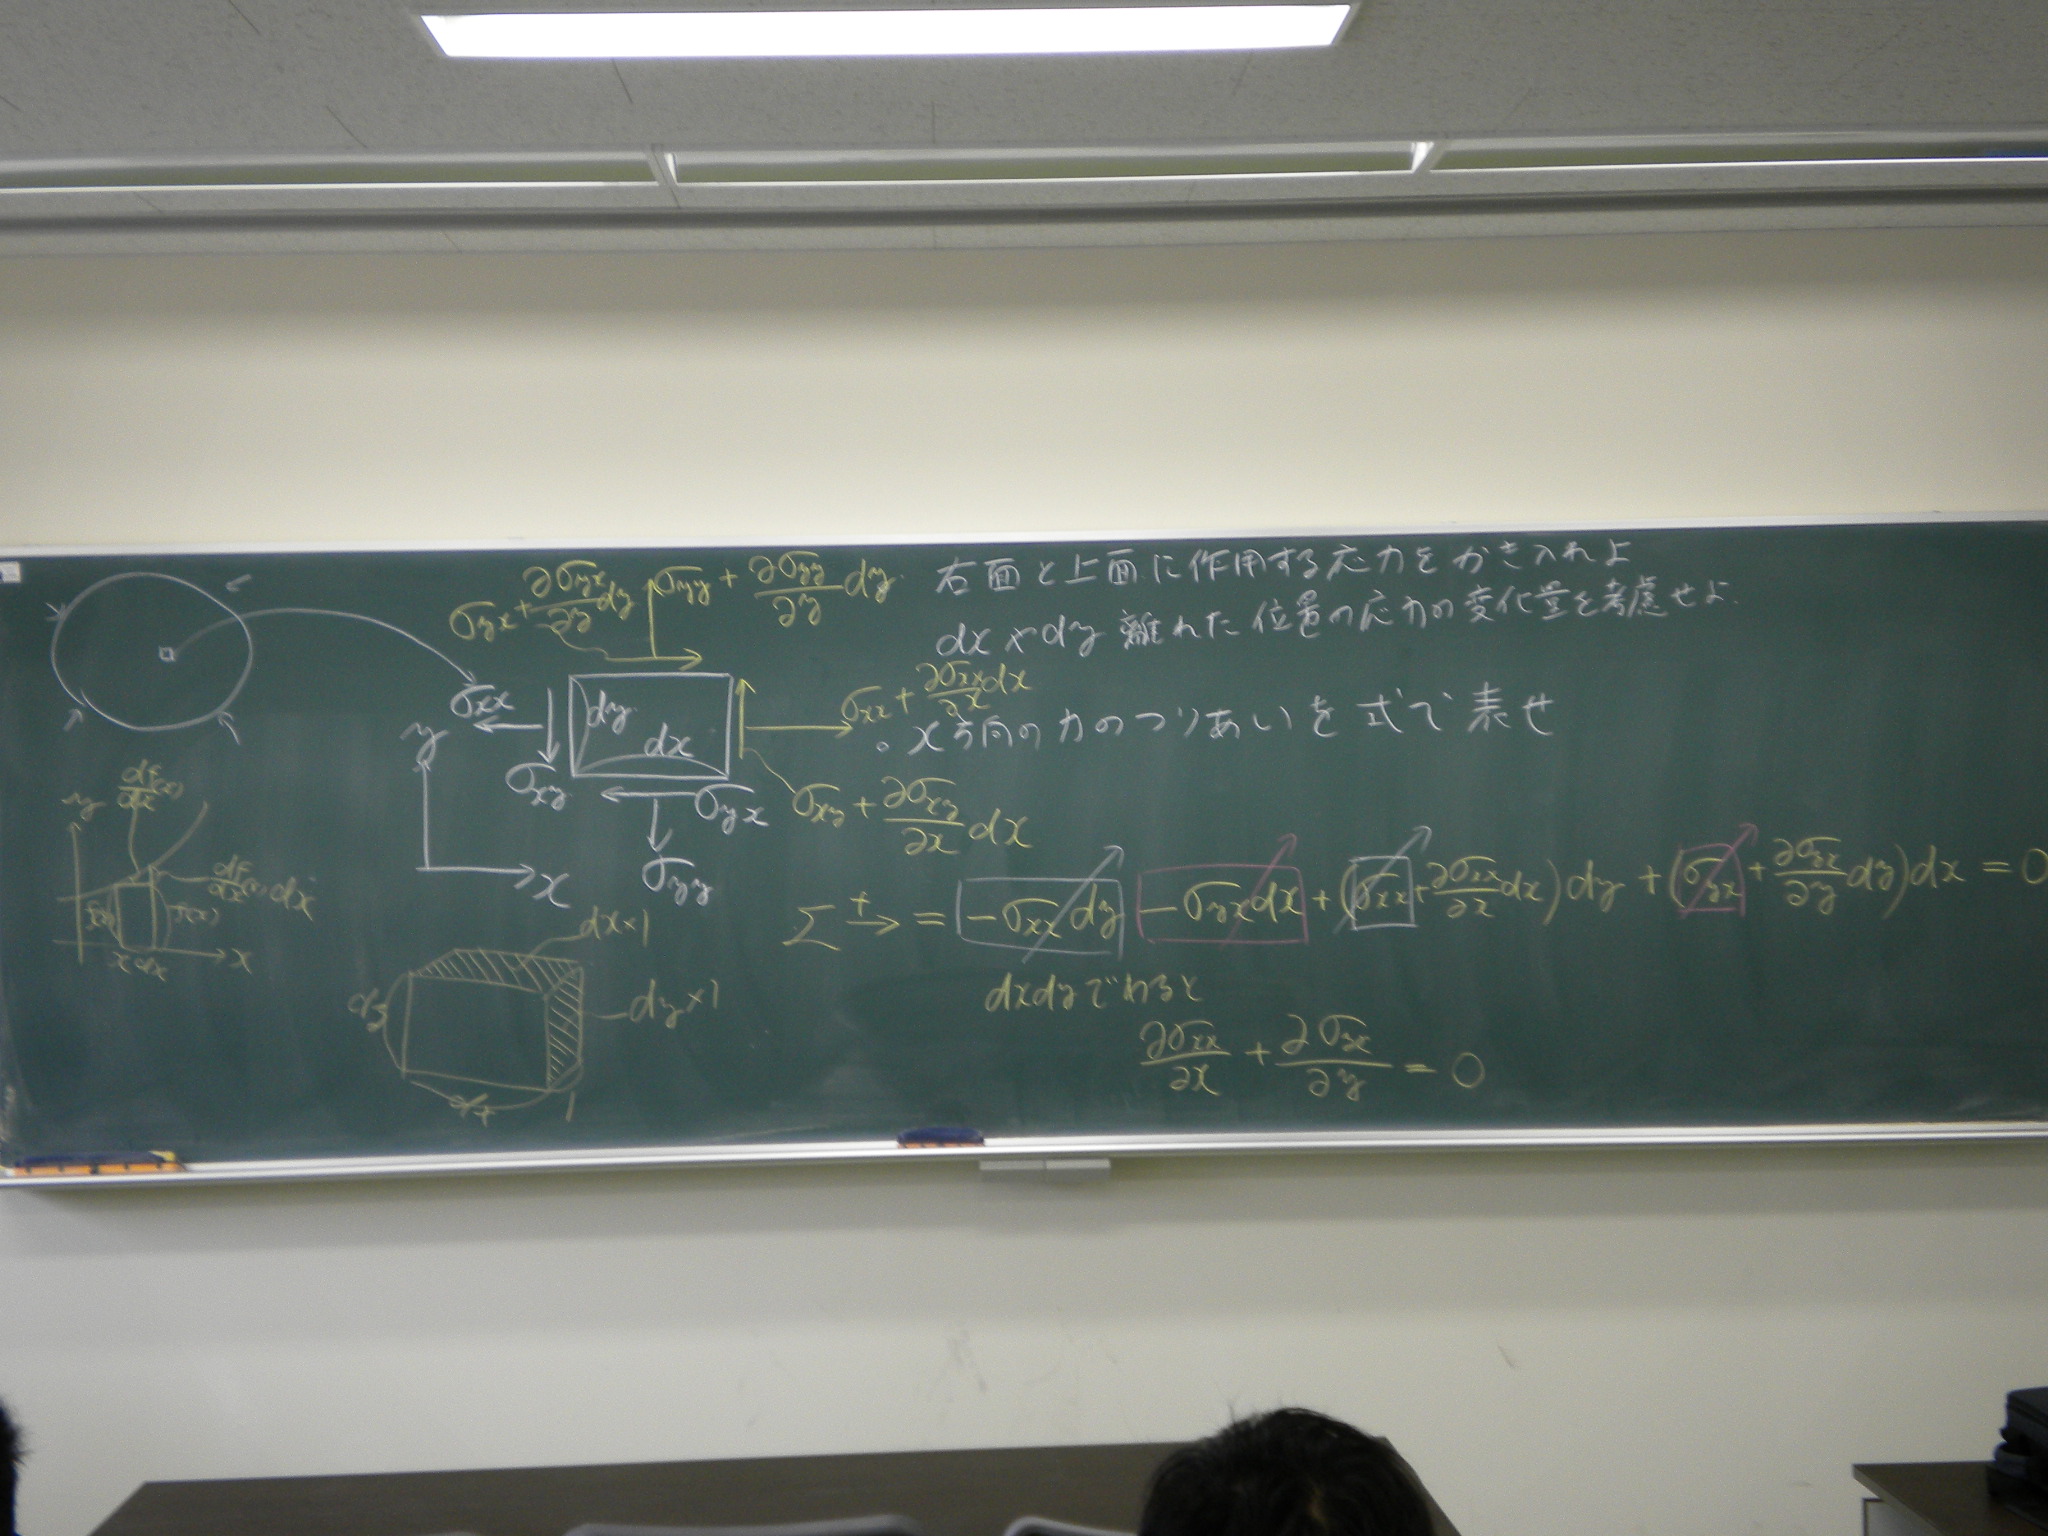 右面と上面に作用する応力をかき入れよ
dxやdy離れた位置の応力の変化量を考慮せよ.
。x方向の力のつりあいを式で表せ
σyx + ∂σyx/∂y dy
σyy + ∂σyy/∂y dy
σxx
dy
dx
σxx + ∂σxx/∂x dx
σxy
σyx
σxy + ∂σxy/∂x dx
σyy
y
x
y
df/dx(x)
df/dx(x)dx
f(x)
f(x)
x dx
x
dx×1
dy×1
dy
1
Σ +→ = -σxx dy - σyx dx + (σxx + ∂σxx/∂x dx)dy + (σyx + ∂σyx/∂y dy)dx = 0
dxdyでわると
∂σxx/∂x + ∂σyx/∂y = 0